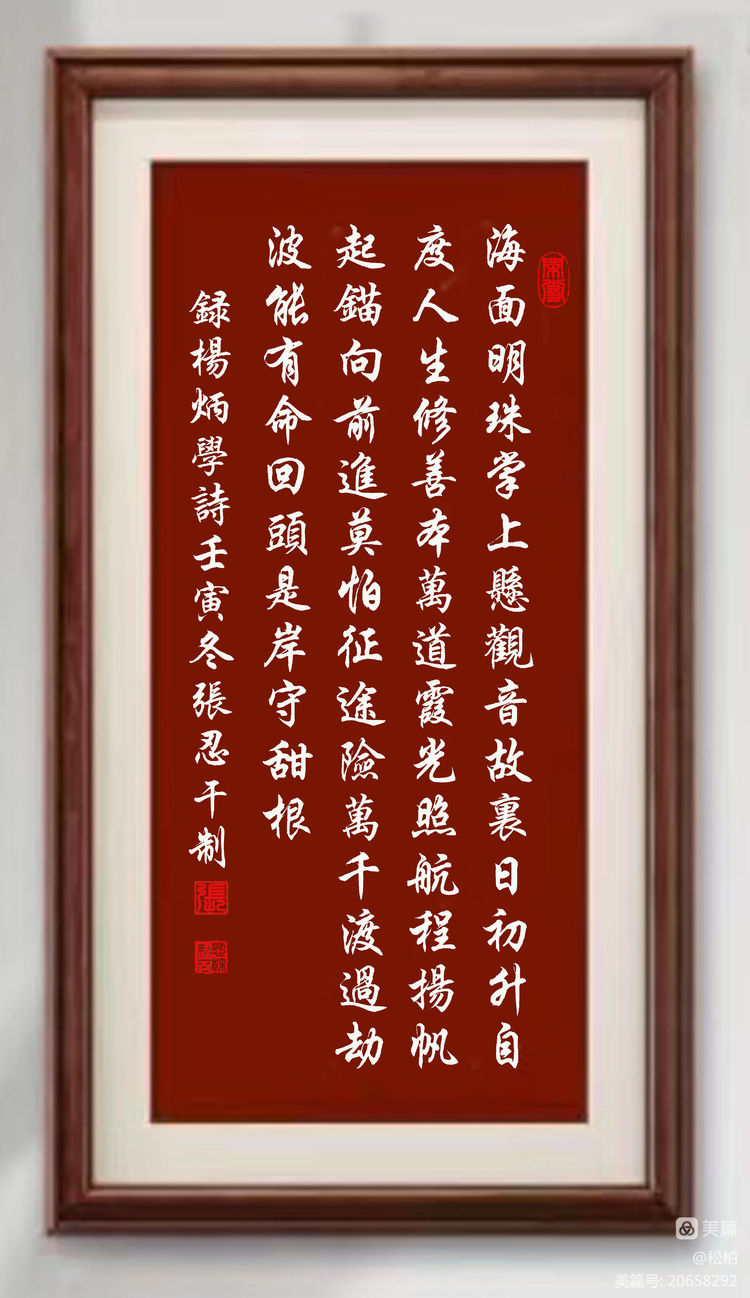 海面明珠掌上懸觀音故裏日初升自
度人生修善本萬道霞光照航程揚帆
起錨向前進莫怕征途險萬千渡過劫
波能有命回頭是岸守甜根
録楊炳學詩壬寅冬張忍干制
張
美篇
@松柏
美篇号: 20658292